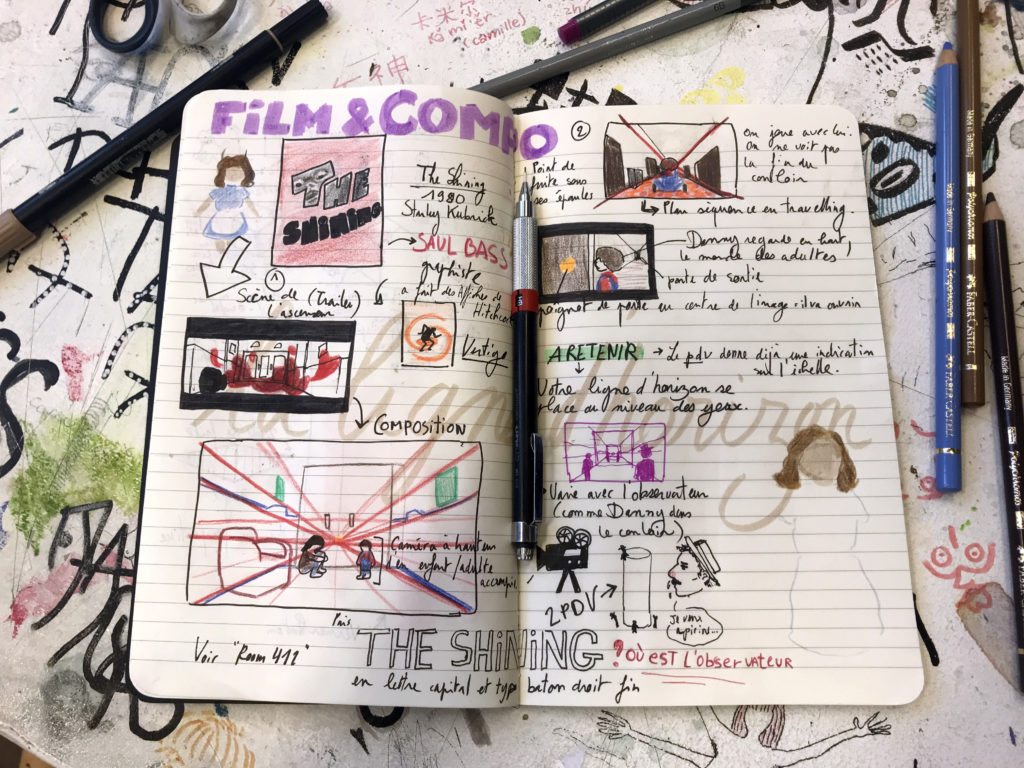 FILM & COMPO
THE
SHINING
The Shining
1980
Stanley Kubrick
→ SAUL BASS
graphiste
a fait des Affiches de
Hitchcock
Vertigo
1
Scène de (Trailer)
l'ascenseur
COMPOSITION
Caméra à hauteur
d'en enfant/adulte
accroupi
Puis
Voir "Room 412"
THE SHINING
en lettre capital et type baton droit fin
2
Point de
fuite sous
ses épaules
On joue avec lui.
On ne voit pas
la fin du
couloir
Plan séquence en travelling.
Danny regarde en haut,
le monde des adultes
porte de sortie
poignet de porte en centre de l'image
A RETENIR → Le pdv donne déjà une indication
sur l'échelle.
Votre ligne d'horizon se
place au niveau des yeux.
La ligne d'horizon
• Varie avec l'observateur
(comme Danny dans
le couloir)
2 PDV
Je vous
? OÙ EST L'OBSERVATEUR
卡米尔
(camille)
神
6B
Made in Germany
FABER-CASTELL
Polychromos
Made in Germany